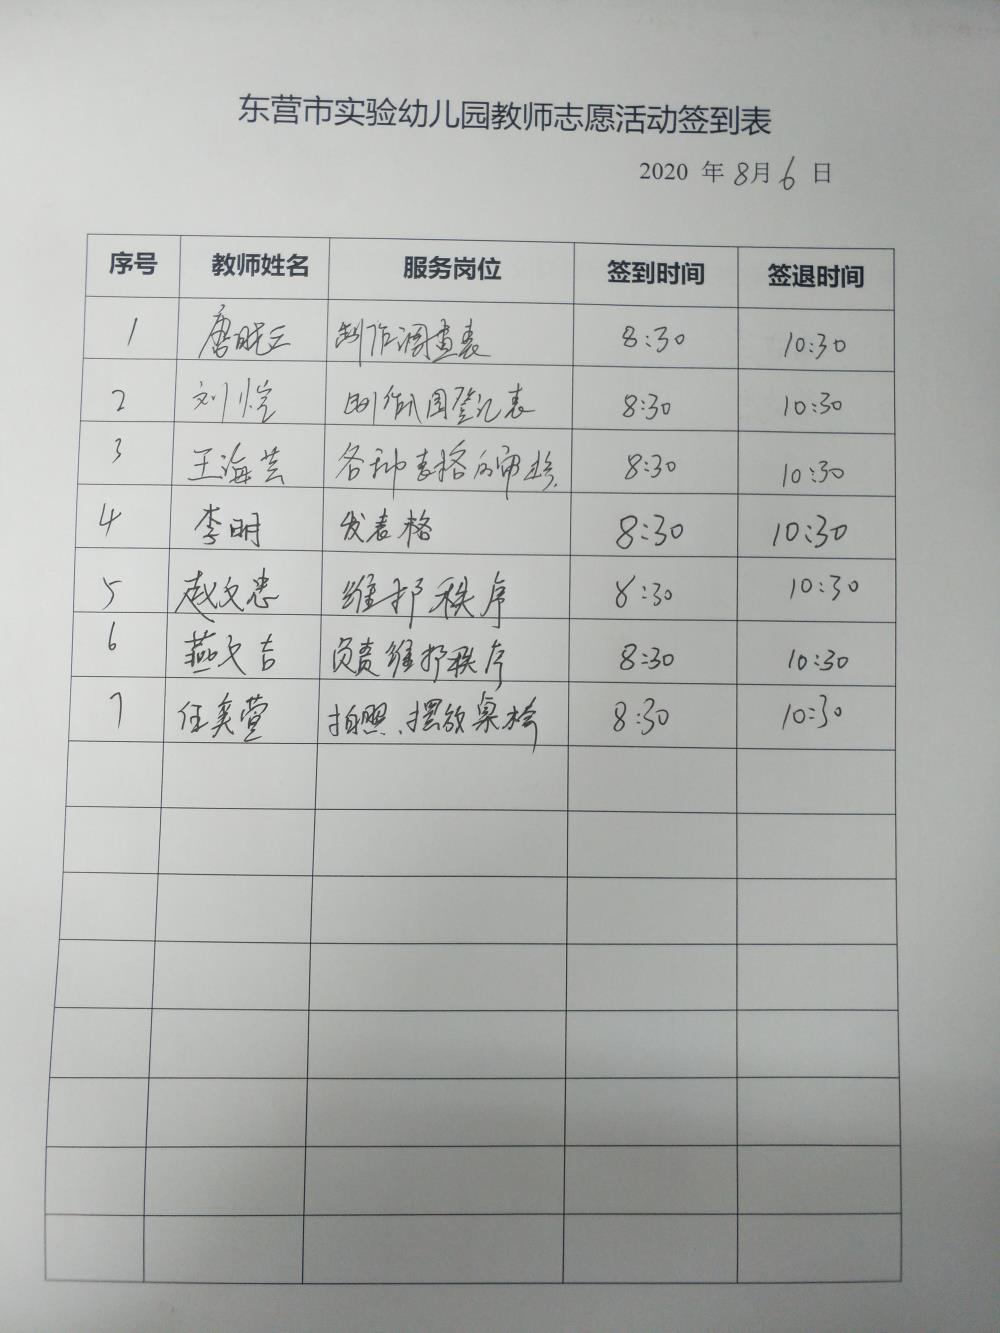 东营市实验幼儿园教师志愿活动签到表
2020 年 8月 6 日
序号 教师姓名 服务岗位 签到时间 签退时间
1 唐晓云 制作调查表 8:30 10:30
2 刘 登记表 8:30 10:30
3 王海芸 各种表格的审核. 8:30 10:30
4 李明 发表格 8:30 10:30
5 赵文忠 维护秩序 8:30 10:30
6 燕文吉 负责维护秩序 8:30 10:30
7 任奕萱 拍照、摆放桌椅 8:30 10:30